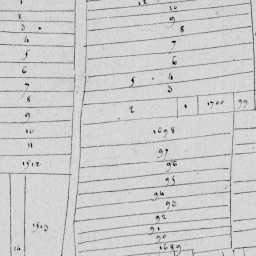 1
2
3
4
5
6
7
8
9
10
11
1512
1513
14
10
9
8
7
6
5 4
3
2 1 1700 99
1698
97
96
95
94
93
92
91
90
1689